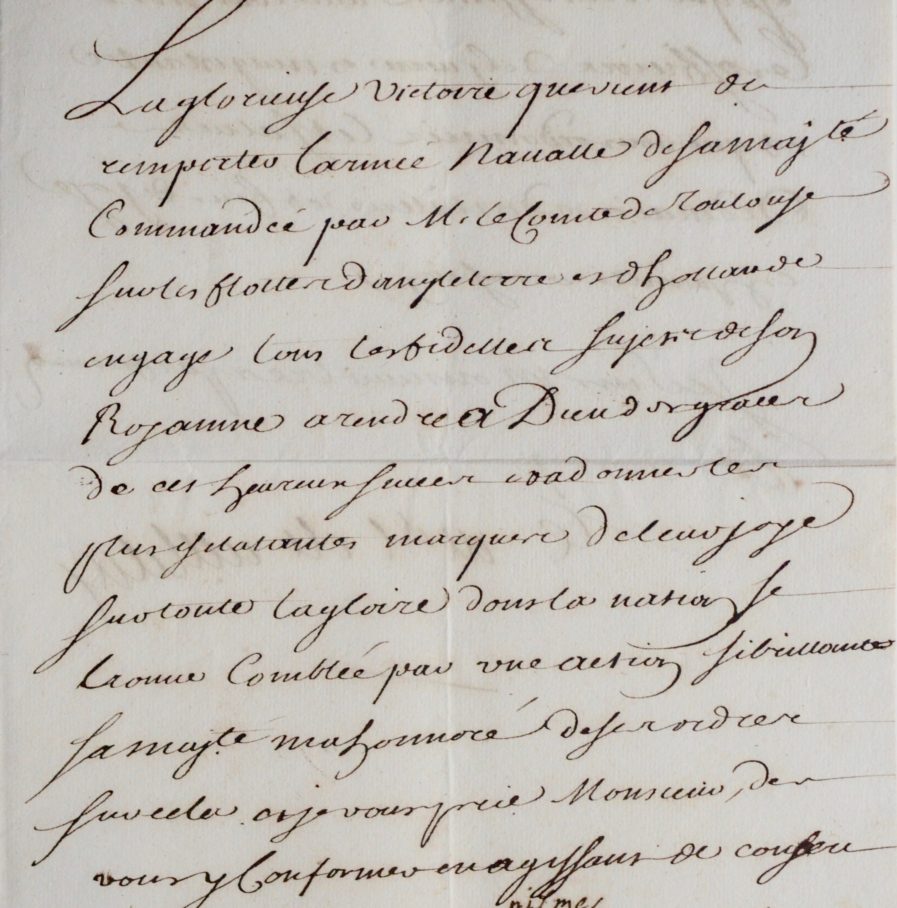 La glorieuse victoire que vient de
remporter larmée Navalle de sa majté
Commandée par Mr le Comte de Toulouse
sur les flottes d'angleterre et d'hollande
engage tous les fidelles sujets de son
Royaume a rendre a Dieu des graces
de cet heureux succes et a donner les
plus esclatantes marques de leur joye
sur toute la gloire dont la nation se
trouve Comblée par une action si brillante
sa majté ma honnoré de ses ordres
sur cela et je vous prie Monsieur, de
vous y Conformer en agissant de concert